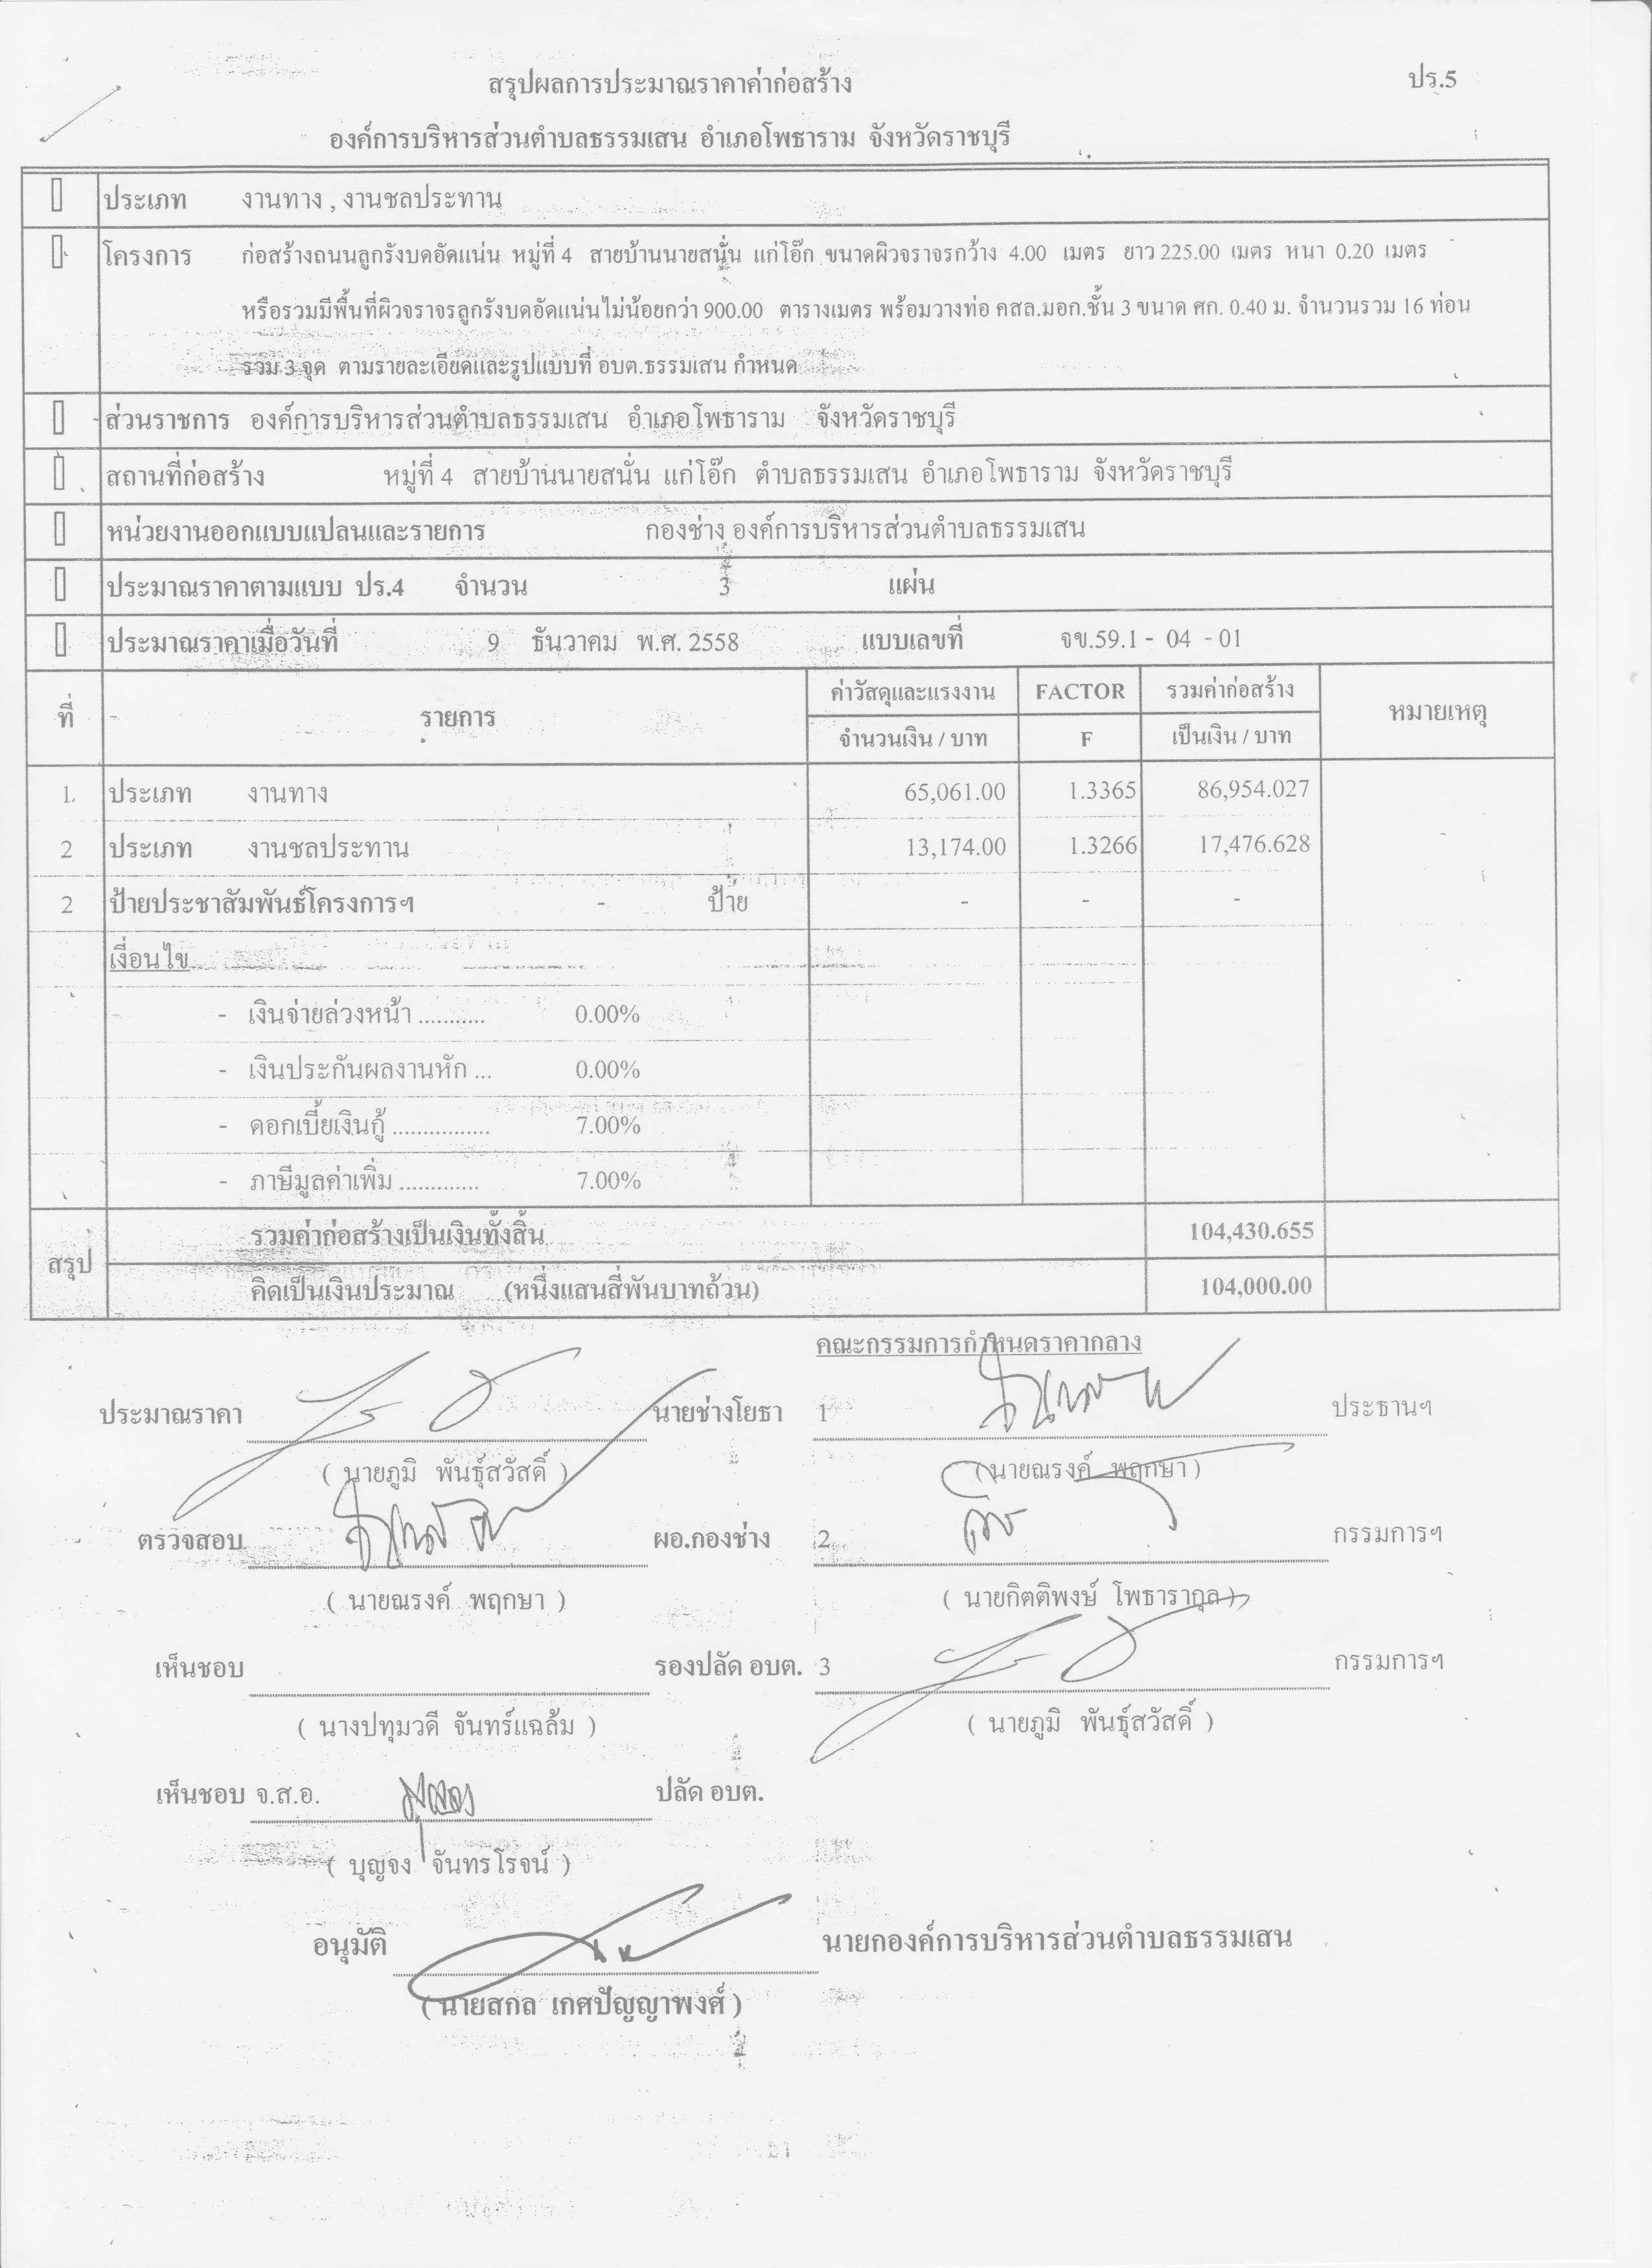 สรุปผลการประมาณราคาค่าก่อสร้าง ปร.5
องค์การบริหารส่วนตำบลธรรมเสน อำเภอโพธาราม จังหวัดราชบุรี
ประเภท งานทาง , งานชลประทาน
โครงการ ก่อสร้างถนนลูกรังบดอัดแน่น หมู่ที่ 4 สายบ้านนายสนั่น แก่โอ๊ก ขนาดผิวจราจรกว้าง 4.00 เมตร ยาว 225.00 เมตร หนา 0.20 เมตร
หรือรวมมีพื้นที่ผิวจราจรลูกรังบดอัดแน่นไม่น้อยกว่า 900.00 ตารางเมตร พร้อมวางท่อ คสล.มอก.ชั้น 3 ขนาด ศก. 0.40 ม. จำนวนรวม 16 ท่อน
รวม 3 จุด ตามรายละเอียดและรูปแบบที่ อบต.ธรรมเสน กำหนด
ส่วนราชการ องค์การบริหารส่วนตำบลธรรมเสน อำเภอโพธาราม จังหวัดราชบุรี
สถานที่ก่อสร้าง หมู่ที่ 4 สายบ้านนายสนั่น แก่โอ๊ก ตำบลธรรมเสน อำเภอโพธาราม จังหวัดราชบุรี
หน่วยงานออกแบบแปลนและรายการ กองช่าง องค์การบริหารส่วนตำบลธรรมเสน
ประมาณราคาตามแบบ ปร.4 จำนวน 3 แผ่น
ประมาณราคาเมื่อวันที่ 9 ธันวาคม พ.ศ. 2558 แบบเลขที่ จข.59.1 - 04 - 01
ที่ รายการ ค่าวัสดุและแรงงาน FACTOR รวมค่าก่อสร้าง หมายเหตุ
จำนวนเงิน / บาท F เป็นเงิน / บาท
1. ประเภท งานทาง 65,061.00 1.3365 86,954.027
2 ประเภท งานชลประทาน 13,174.00 1.3266 17,476.628
2 ป้ายประชาสัมพันธ์โครงการฯ - ป้าย - - -
เงื่อนไข
- เงินจ่ายล่วงหน้า ........... 0.00%
- เงินประกันผลงานหัก ... 0.00%
- ดอกเบี้ยเงินกู้ ................ 7.00%
- ภาษีมูลค่าเพิ่ม ............. 7.00%
สรุป รวมค่าก่อสร้างเป็นเงินทั้งสิ้น 104,430.655
คิดเป็นเงินประมาณ (หนึ่งแสนสี่พันบาทถ้วน) 104,000.00
คณะกรรมการกำหนดราคากลาง
ประมาณราคา นายช่างโยธา 1 ประธานฯ
( นายภูมิ พันธุ์สวัสดิ์ ) (นายณรงค์ พฤกษา )
ตรวจสอบ ผอ.กองช่าง 2 กรรมการฯ
( นายณรงค์ พฤกษา ) ( นายกิตติพงษ์ โพธารากุล )
เห็นชอบ รองปลัด อบต. 3 กรรมการฯ
( นางปทุมวดี จันทร์แฉล้ม ) ( นายภูมิ พันธุ์สวัสดิ์ )
เห็นชอบ จ.ส.อ. ปลัด อบต.
( บุญจง จันทรโรจน์ )
อนุมัติ นายกองค์การบริหารส่วนตำบลธรรมเสน
( นายสกล เกศปัญญาพงศ์ )